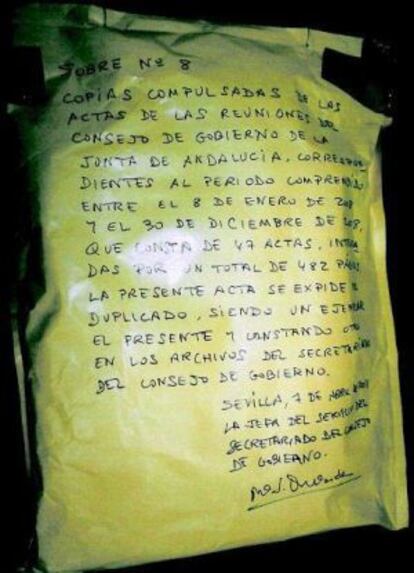 SOBRE Nº 8
COPIAS COMPULSADAS DE LAS
ACTAS DE LAS REUNIONES DEL
CONSEJO DE GOBIERNO DE LA
JUNTA DE ANDALUCIA, CORRESPON-
DIENTES AL PERIODO COMPRENDIDO
ENTRE EL 8 DE ENERO DE
Y EL 30 DE DICIEMBRE DE
QUE CONSTA DE 47 ACTAS, INTEGRA-
DAS POR UN TOTAL DE 482 PÁGINAS
LA PRESENTE ACTA SE EXPIDE
DUPLICADO, SIENDO UN EJEMPLAR
EL PRESENTE Y CONSTANDO OTRO
EN LOS ARCHIVOS DEL SECRETARIADO
DEL CONSEJO DE GOBIERNO.
SEVILLA, 7 DE
LA JEFA DEL SERVICIO DEL
SECRETARIADO DEL CONSEJO
DE GOBIERNO.